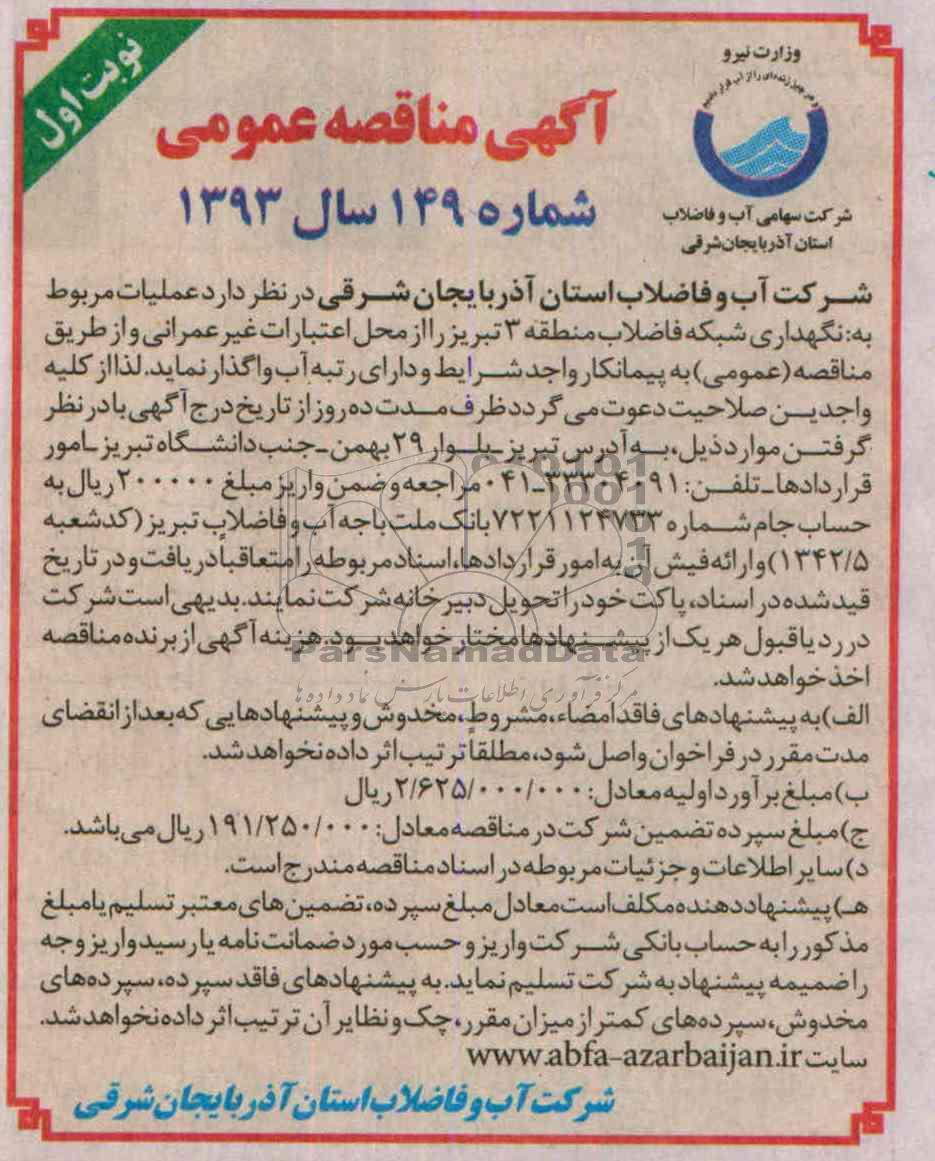 نوبت اول
وزارت نیرو
شرکت سهامی آب و فاضلاب
استان آذربایجان شرقی
آگهی مناقصه عمومی
شماره ۱۴۹ سال ۱۳۹۳
شرکت آب و فاضلاب استان آذربایجان شرقی در نظر دارد عملیات مربوط
به: نگهداری شبکه فاضلاب منطقه ۳ تبریز را از محل اعتبارات غیر عمرانی و از طریق
مناقصه (عمومی) به پیمانکار واجد شرایط و دارای رتبه آب واگذار نماید. لذا از کلیه
واجدین صلاحیت دعوت می گردد ظرف مدت ده روز از تاریخ درج آگهی با در نظر
گرفتن موارد ذیل، به آدرس تبریز ـ بلوار ۲۹ بهمن ـ جنب دانشگاه تبریز ـ امور
قراردادها ـ تلفن: ۳۳۳۰۴۰۹۱ـ۰۴۱ مراجعه و ضمن واریز مبلغ ۲۰۰۰۰۰ ریال به
حساب جام شماره ۷۲۲۱۱۲۴۷۳۳ بانک ملت باجه آب و فاضلاب تبریز (کد شعبه
۱۳۴۲/۵) و ارائه فیش آن به امور قراردادها، اسناد مربوطه را متعاقباً دریافت و در تاریخ
قید شده در اسناد، پاکت خود را تحویل دبیرخانه شرکت نمایند. بدیهی است شرکت
در رد یا قبول هر یک از پیشنهادها مختار خواهد بود. هزینه آگهی از برنده مناقصه
اخذ خواهد شد.
الف) به پیشنهادهای فاقد امضاء، مشروط، مخدوش و پیشنهادهایی که بعد از انقضای
مدت مقرر در فراخوان واصل شود، مطلقاً ترتیب اثر داده نخواهد شد.
ب) مبلغ برآورد اولیه معادل: ۲/۶۲۵/۰۰۰/۰۰۰ ریال
ج) مبلغ سپرده تضمین شرکت در مناقصه معادل: ۱۹۱/۲۵۰/۰۰۰ ریال می باشد.
د) سایر اطلاعات و جزئیات مربوطه در اسناد مناقصه مندرج است.
هـ) پیشنهاد دهنده مکلف است معادل مبلغ سپرده، تضمین های معتبر تسلیم یا مبلغ
مذکور را به حساب بانکی شرکت واریز و حسب مورد ضمانت نامه یا رسید واریز وجه
را ضمیمه پیشنهاد به شرکت تسلیم نماید. به پیشنهادهای فاقد سپرده، سپرده های
مخدوش، سپرده های کمتر از میزان مقرر، چک و نظایر آن ترتیب اثر داده نخواهد شد.
سایت www.abfa-azarbaijan.ir
شرکت آب و فاضلاب استان آذربایجان شرقی
ParsNamadData
مرکز فرآوری اطلاعات پارس نماد داده ها